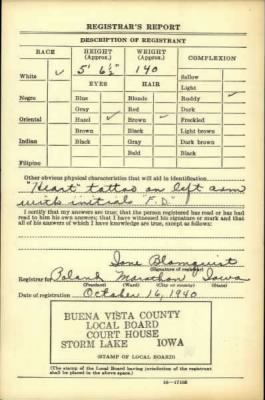 REGISTRAR'S REPORT
DESCRIPTION OF REGISTRANT
RACE HEIGHT (Approx.) WEIGHT (Approx.) COMPLEXION
White ✓ 5' 6½" 140 Sallow
EYES HAIR Light
Negro Blue Blonde Ruddy ✓
Gray Red Dark
Oriental Hazel ✓ Brown ✓ Freckled
Brown Black Light brown
Indian Black Gray Dark brown
Bald Black
Filipino
Other obvious physical characteristics that will aid in identification
"Heart" tattoo on left arm
with initials "F.D."
I certify that my answers are true; that the person registered has read or has had
read to him his own answers; that I have witnessed his signature or mark and that
all of his answers of which I have knowledge are true, except as follows:
Ione Blomquist
(Signature of registrar)
Registrar for Poland Marathon Iowa
(Precinct) (Ward) (City or county) (State)
Date of registration October 16, 1940
BUENA VISTA COUNTY
LOCAL BOARD
COURT HOUSE
STORM LAKE IOWA
(STAMP OF LOCAL BOARD)
(The stamp of the Local Board having jurisdiction of the registrant
shall be placed in the above space.)